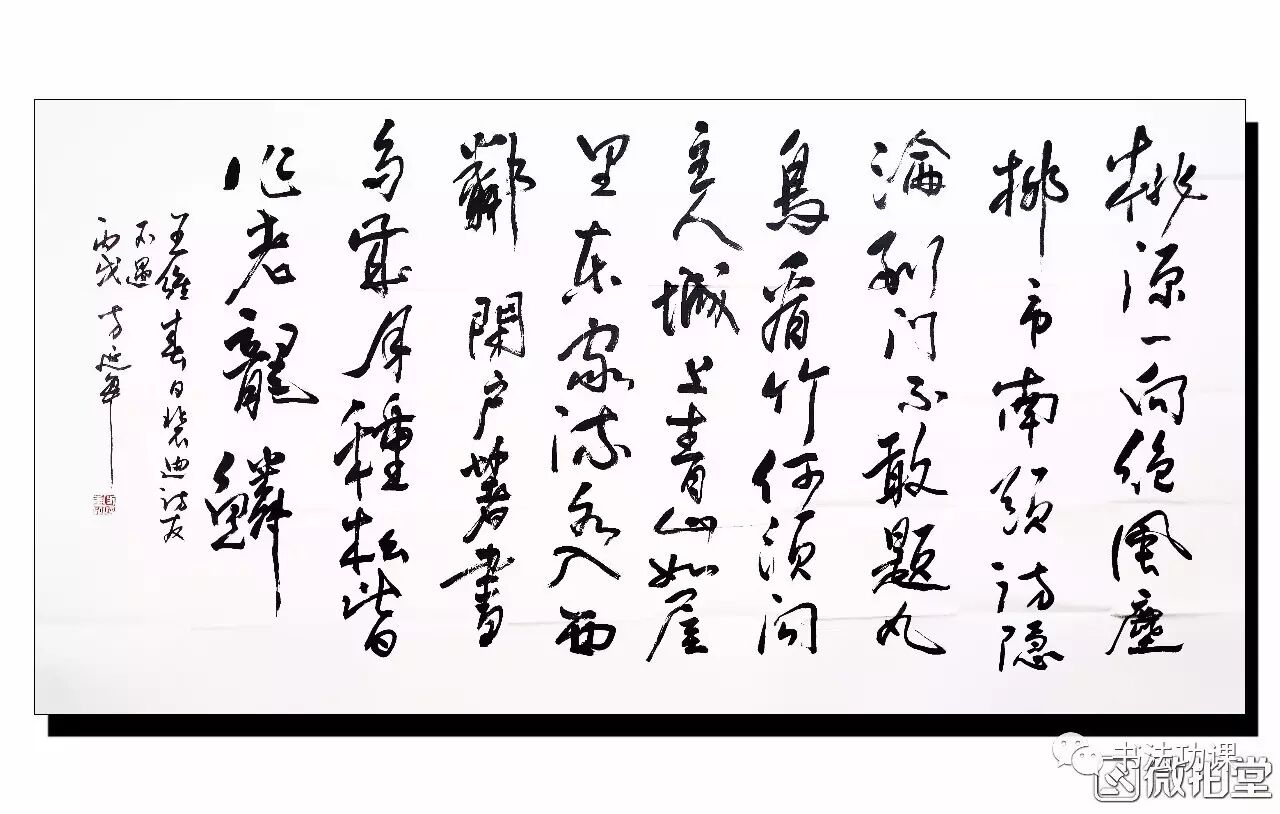 桃源一向絶風塵
柳市南頭訪隐
淪到门不敢題凡
鳥看竹何須问
主人城上青山如屋
里东家流水入西
鄰閉户著書
多歲月種松皆
作老龍鱗
王維春日裴迪訪友
不遇
丙戌 方延年
书法功课
微拍堂